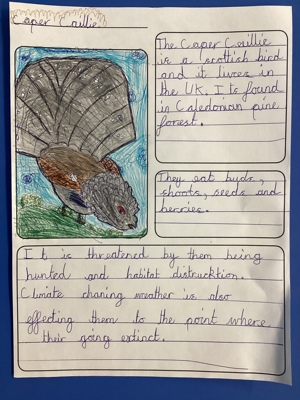 Caper Caillie
The Caper Caillie
is a scottish bird
and it lives in
the UK. I ts found
in Caledonian pine
forest.
They eat buds,
shoots, seeds and
berries.
I t is threatened by them being
hunted and habitat distrucktion.
Climate chaning weather is also
effecting them to the point where
their going extinct.